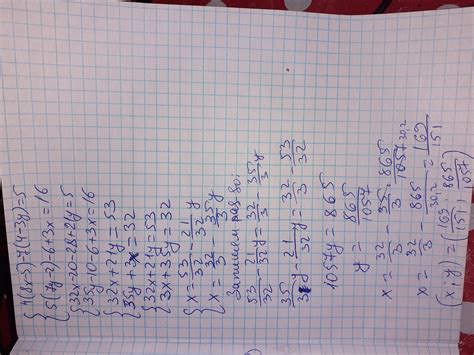 4(8x-5)-7(4-3y)=5
5(7y-2)-6+3x=16
32x-20-28+21y=5
35y-10-6+3x=16
32x+21y=53
35y+3x=32
32x+21y=53
3x+35y=32
x=53/32-21/32y
x=32/3-35/3y
Запишем
53/32-21/32y=32/3-35/3y
35/3y-21/32y=32/3-53/32
1057y=865
y=865/1057
x=32/3-35/3·865/1057 30,2
x=32/3-865/30,2=169/151
(x;y)=(169/151; 865/1057)